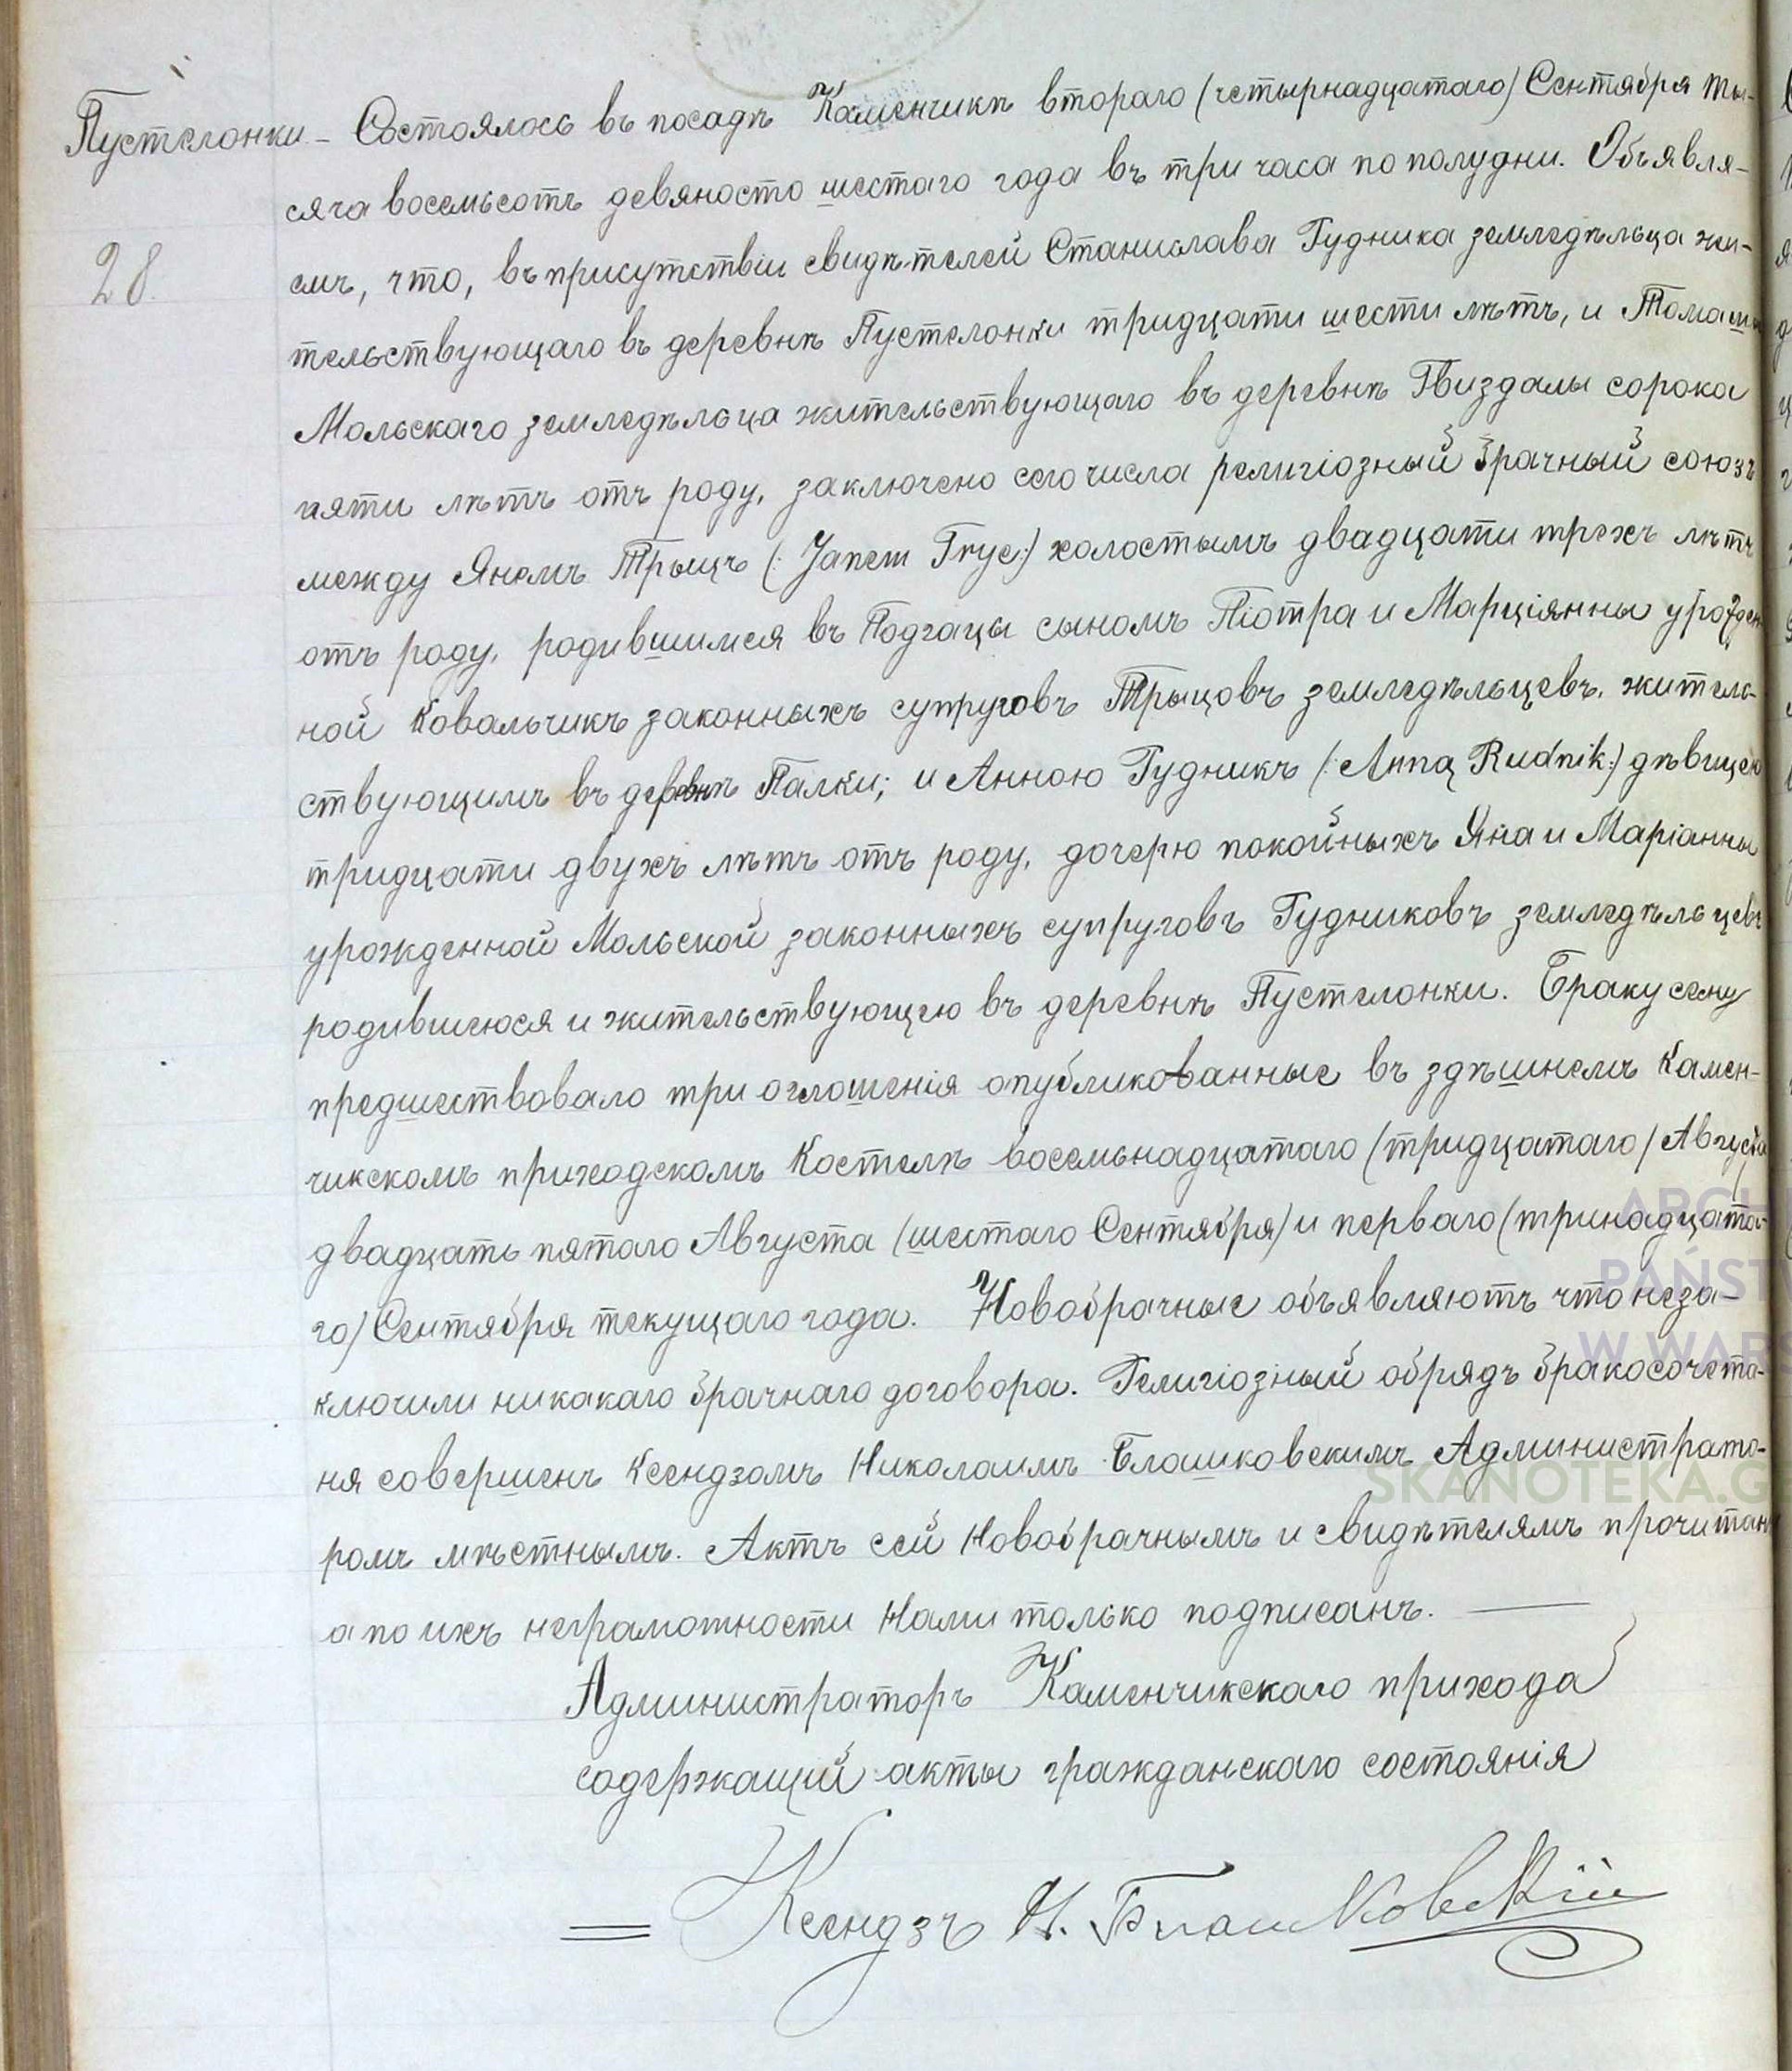 Пустелонки – Состоялось въ посадѣ Каменчикѣ втораго (четырнадцатаго) Сентября ты-
28.
сяча восемьсотъ девяносто шестаго года въ три часа по полудни. Объявля-
емъ, что, въ присутствіи свидѣтелей Станислава Рудника земледѣльца жи-
тельствующаго въ деревнѣ Пустелонки тридцати шести лѣтъ, и Томаша
Мольскаго земледѣльца жительствующаго въ деревнѣ Гвиздалы сорока
пяти лѣтъ отъ роду, заключено сего числа религіозный брачный союзъ
между Яномъ Трыцъ (: Janem Tryc:) холостымъ двадцати трехъ лѣтъ
отъ роду, родившимся въ Подгацы сыномъ Піотра и Марціянны урожден
ной Ковальчикъ законныхъ супруговъ Трыцовъ земледѣльцевъ, житель-
ствующимъ въ деревнѣ Палки; и Анною Рудникъ (: Anną Rudnik:) дѣвицею
тридцати двухъ лѣтъ отъ роду, дочерю покойныхъ Яна и Маріанны
урожденной Мольской законныхъ супруговъ Рудниковъ земледѣльцевъ
родившеюся и жительствующею въ деревнѣ Пустелонки. Браку сему
предшествовало три оглошенія опубликованные въ здѣшнемъ Камен-
чикскомъ приходскомъ Костелѣ восемьнадцатаго (тридцатаго) Августа
двадцать пятаго Августа (шестаго Сентября) и перваго (тринадцата-
го) Сентября текущаго года. Новобрачные объявляютъ что неза-
ключили никакаго брачнаго договора. Религіозный обрядъ бракосочета-
ня совершенъ Ксендзомъ Николаимъ Блашковскимъ Администрато-
ромъ мѣстнымъ. Актъ сей Новобрачнымъ и свидѣтелямъ прочитан
а по ихъ неграмотности Нами только подписанъ.
Администраторъ Каменчикскаго прихода
содержащій акты гражданскаго состоянія
Ксендзъ Н. Блашковскій
ARCH
PAŃST
W WARS
SKANOTEKA.G